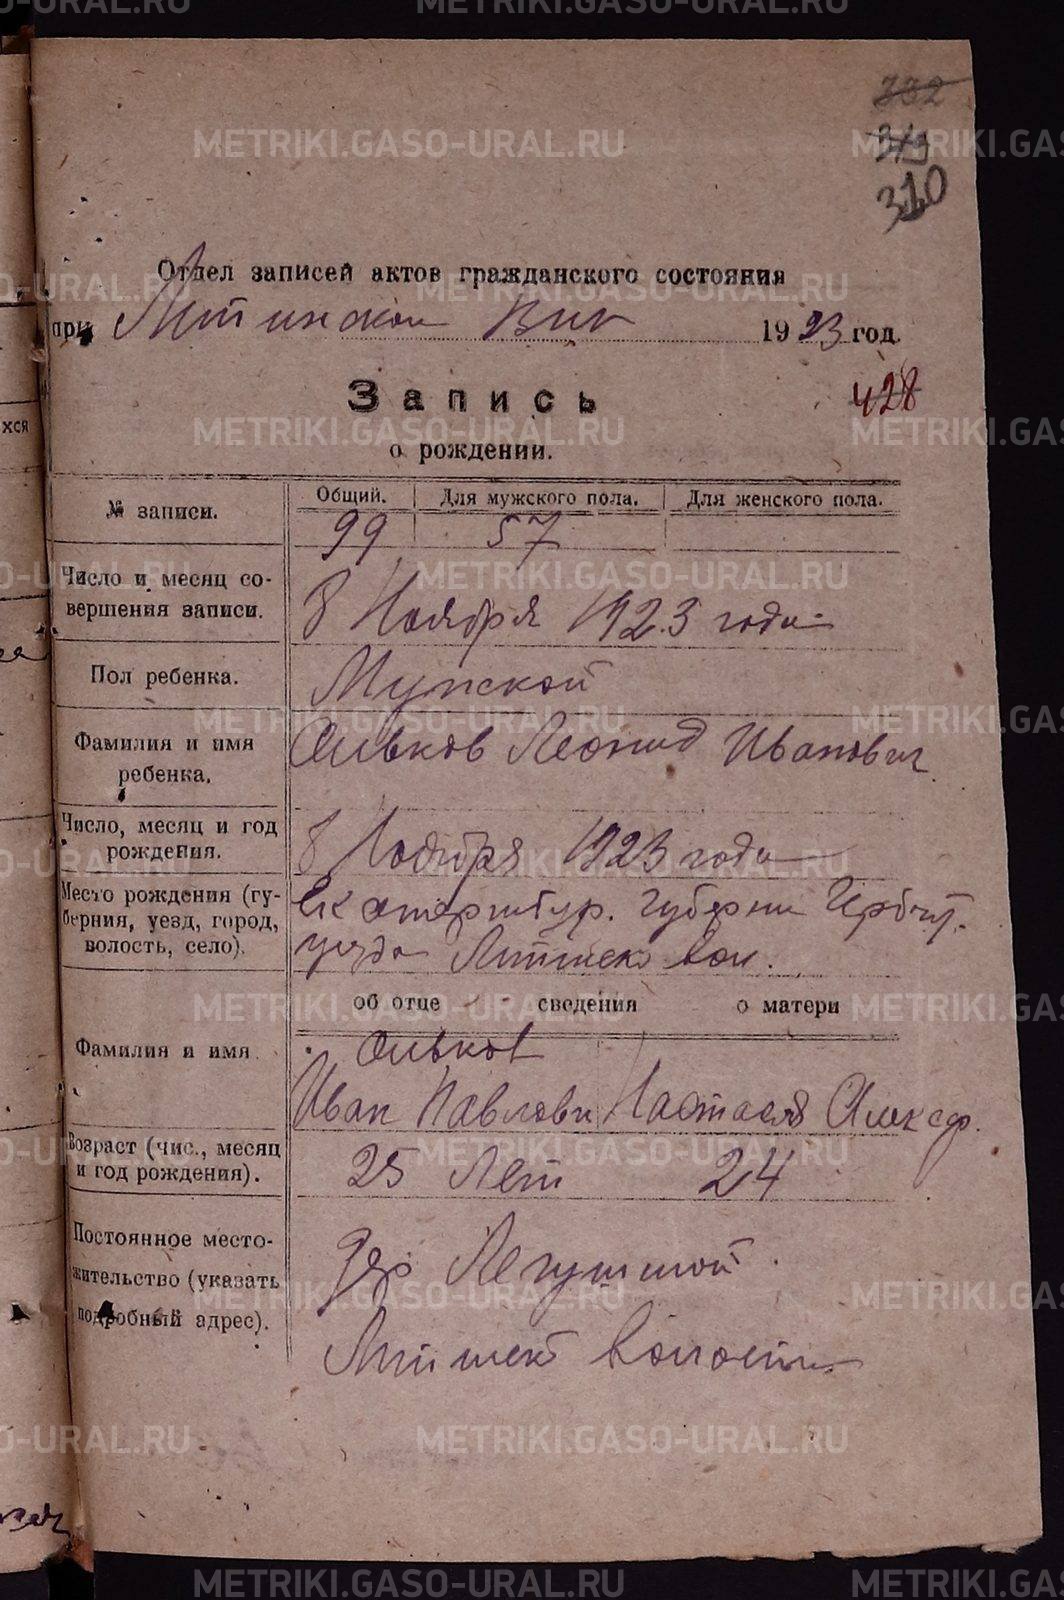 332
319
310
Отдел записей актов гражданского состояния
при Лятинском Вик 1923 год.
428
Запись
о рождении.
№ записи. Общий. Для мужского пола. Для женского пола.
99 57
Число и месяц со-
вершения записи.
8 Ноября 1923 года
Пол ребенка. Мужской
Фамилия и имя
ребенка.
Ольков Леонид Иванович
Число, месяц и год
рождения.
8 Ноября 1923 года
Место рождения (гу-
берния, уезд, город,
волость, село).
Екатеринбур. губернии Ирбит.
уезда вол.
об отце сведения о матери
Фамилия и имя
Ольков
Иван Павлови Настасея Алексар.
Возраст (чис., месяц
и год рождения).
25 Лет 24
Постоянное место-
жительство (указать
подробный адрес).
дер Лягушиной
волости
METRIKI.GASO-URAL.RU